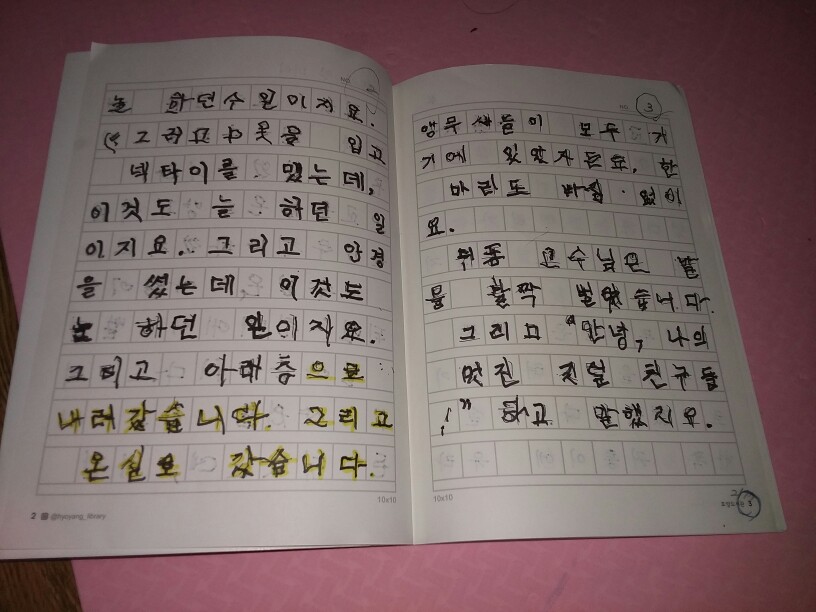 늘 하던 수 일이지요.
그리고 옷을 입고
넥타이를 맸는데,
이것도 늘 하던 일
이지요. 그리고 안경
을 썼는데 이것도
늘 하던 일이지요.
그리고 아래층으로
내려갔습니다. 그리고
온실로 갔습니다.
10x10
2 @hyoyang_library
3
앵무새들이 모두 거
기에 있었자든요, 한
마리도 빠짐 없이
요.
교수님은 팔
을 활짝 벌렸습니다.
그리고 "안녕, 나의
멋진 깃털 친구들
!" 하고 말했지요.
10x10
3